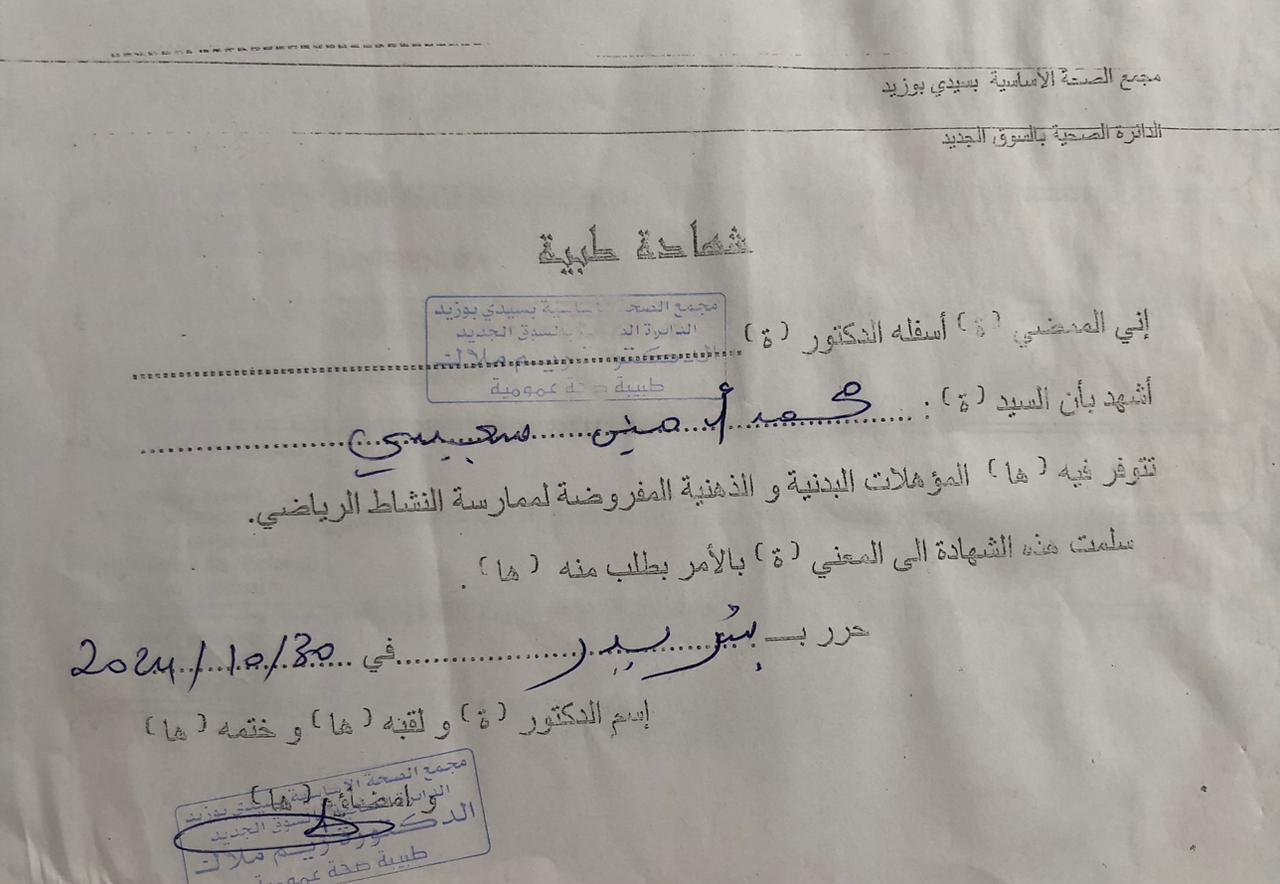 مجمع الصحة الأساسية بسيدي بوزيد
الدائرة الصحية بالسوق الجديد
شهادة طبية
مجمع الصحة الأساسية بسيدي بوزيد
الدائرة الصحية بالسوق الجديد
الدكتورة ريم ملاك
طبيبة صحة عمومية
إني الممضي (ة) أسفله الدكتور (ة)
أشهد بأن السيد (ة) : محمد أمين سعيدي
تتوفر فيه (ها) المؤهلات البدنية و الذهنية المفروضة لممارسة النشاط الرياضي.
سلمت هذه الشهادة الى المعني (ة) بالأمر بطلب منه (ها) .
حرر بـ في 2024/10/30
إسم الدكتور (ة) و لقبه (ها) و ختمه (ها)
و امضاؤه (ها)
مجمع الصحة الأساسية بسيدي بوزيد
الدائرة الصحية بالسوق الجديد
الدكتورة ريم ملاك
طبيبة صحة عمومية